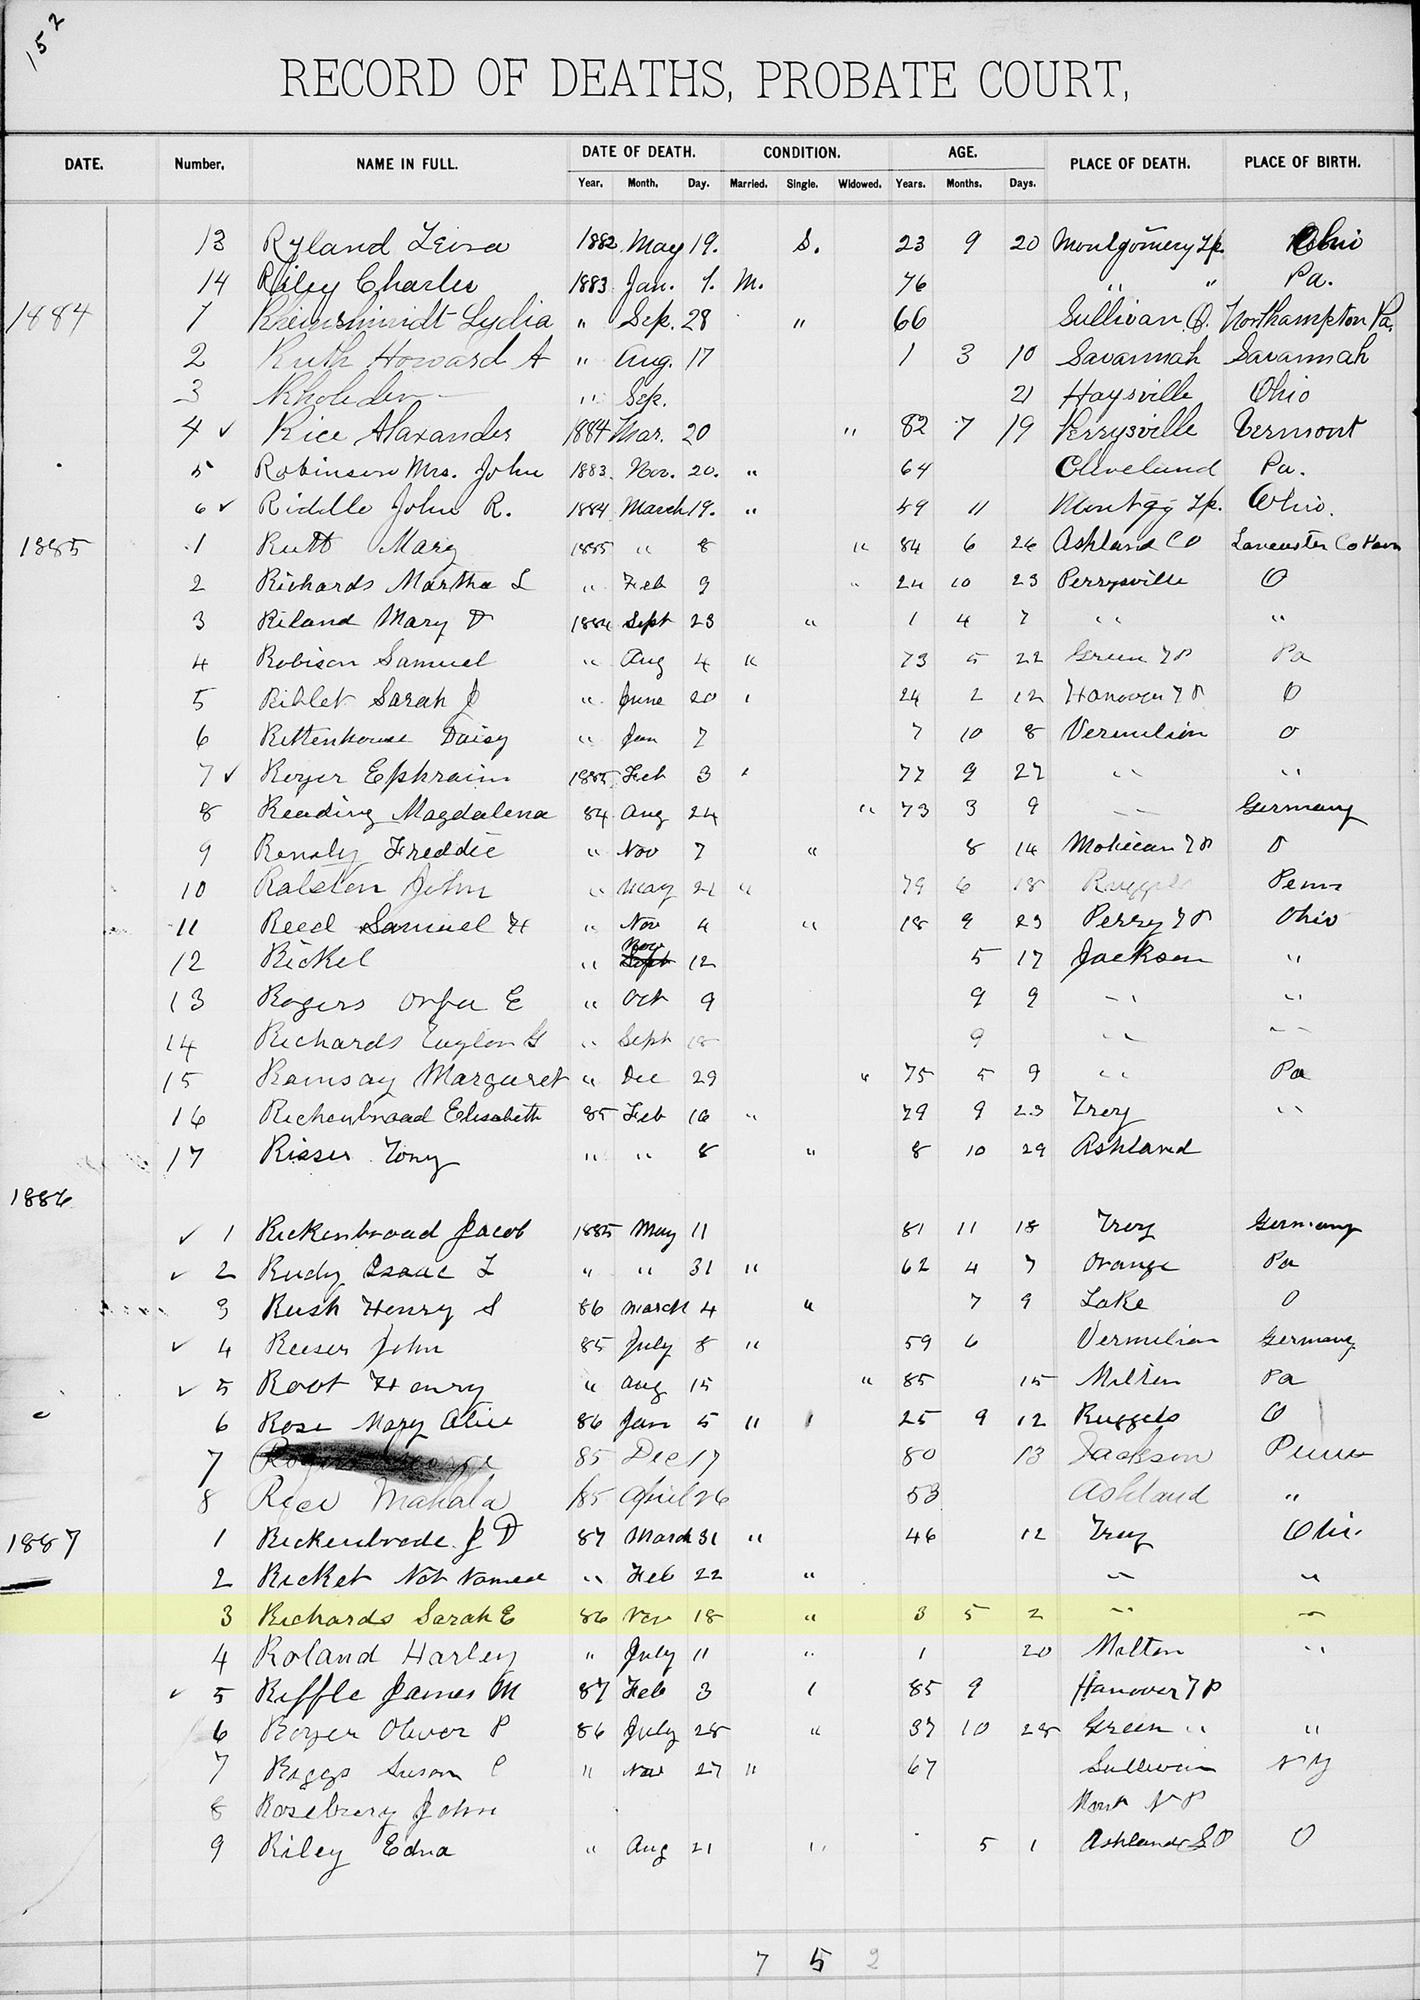 152
RECORD OF DEATHS, PROBATE COURT,
DATE. Number. NAME IN FULL. DATE OF DEATH. CONDITION. AGE. PLACE OF DEATH. PLACE OF BIRTH.
Year. Month. Day. Married. Single. Widowed. Years. Months. Days.
13 Ryland 1882 May 19. S. 23 9 20 Montgomery Tp. Ohio
14 Riley Charles 1883 Jan. 1. M. 76 " " Pa.
1884 1 Lydia " Sep. 28 " 66 Sullivan O. Northampton Pa.
2 Ruth Howard A " Aug. 17 1 3 10 Savannah Savannah
3 " Sep. 21 Haysville Ohio
4 ✓ Rice Alaxander 1884 Mar. 20 " 82 7 19 Perrysville Vermont
5 Robinson Mrs. John 1883. Nov. 20. " 64 Cleveland Pa.
6 ✓ Riddle John R. 1884 March 19. " 59 11 Montgy Tp. Ohio.
1885 1 Rutt Mary 1885 " 8 " 84 6 26 Ashland Co Lancaster Co Penn
2 Richards Martha L " Feb 9 " 24 10 23 Perrysville O
3 Riland Mary D 1884 Sept 23 " 1 4 7 " " "
4 Robison Samuel " Aug 4 " 73 5 22 Green TP Pa
5 Riblet Sarah J " June 20 ' 24 2 12 Hanover TP O
6 Rittenhouse Daisy " Jan 7 7 10 8 Vermilion O
7 ✓ Royer Ephraim 1885 Feb 3 ' 77 9 27 " "
8 Reading Magdalena 84 Aug 24 " 73 3 9 " Germany
9 Freddie " Nov 7 " 8 14 Mohican TP O
10 Ralston John " May 21 " 79 6 18 Ruggels Penn
11 Reed Samuel H " Nov 4 " 18 9 23 Perry TP Ohio
12 Rickel " Nov 12 5 17 Jackson "
13 Rogers Orpha E " Oct 9 9 9 " "
14 Richards G " Sept 18 9 " "
15 Ramsay Margaret " Dec 29 " 75 5 9 " Pa
16 Richenbroad Elisabeth 85 Feb 16 " 79 9 23 Troy "
17 Risser Tony " " 8 " 8 10 29 Ashland
1886
✓ 1 Rickenbroad Jacob 1885 May 11 81 11 18 Troy Germany
✓ 2 Rudy Isaac L " " 31 " 62 4 7 Orange Pa
3 Rush Henry S 86 March 4 " 7 9 Lake O
✓ 4 Reeser John 85 July 8 " 59 6 Vermilion Germany
✓ 5 Root Henry " Aug 15 " 85 15 Milton Pa
6 Rose Mary Alice 86 Jan 5 " 1 25 9 12 Ruggels O
7 85 Dec 17 80 13 Jackson Penn
8 Rice Mahala 85 April 26 53 Ashland "
1887 1 Rickenbrode J D 87 March 31 " 46 12 Troy Ohio
2 Ricket Not Named " Feb 22 " " "
3 Richards Sarah E 86 Nov 18 " 3 5 2 " "
4 Roland Harley " July 11 " 1 20 Milton "
✓ 5 Riffle James M 87 Feb 3 1 85 9 Hanover TP
6 Royer Oliver P 86 July 28 " 37 10 28 Green " "
7 Riggs Susan C " Nov 27 " 67 Sullivan N Y
8 Rosebury John
9 Riley Edna " Aug 21 " 5 1 Ashland O
7 5 2